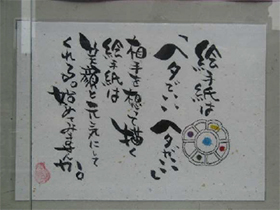 絵手紙は
「ヘタでいい ヘタがいい」
相手を想って描く
絵手紙は
笑顔と元気にして
くれる。始めてみませんか